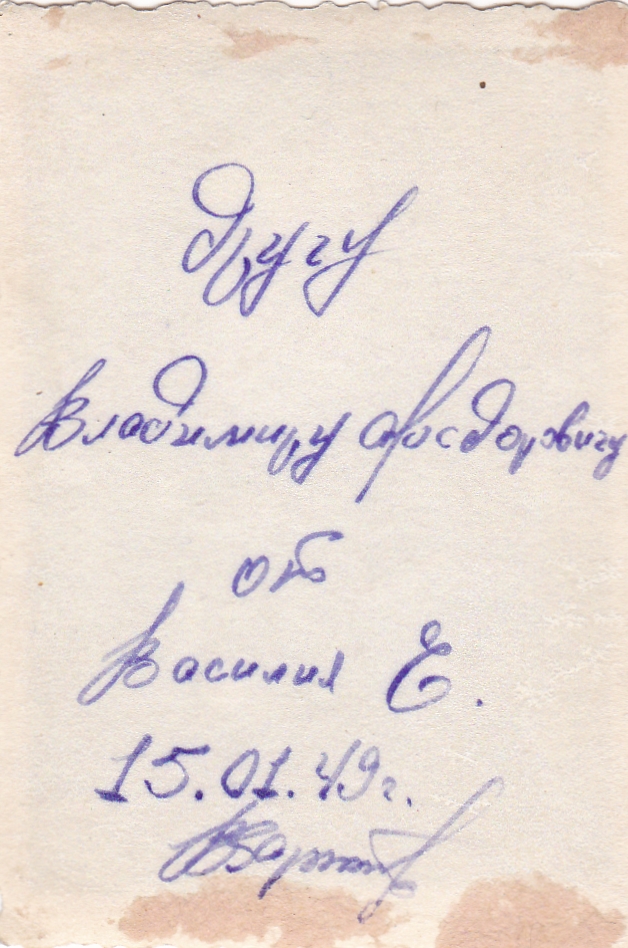 Другу
Владимиру Федоровичу
от
Василия Е.
15.01.49г.